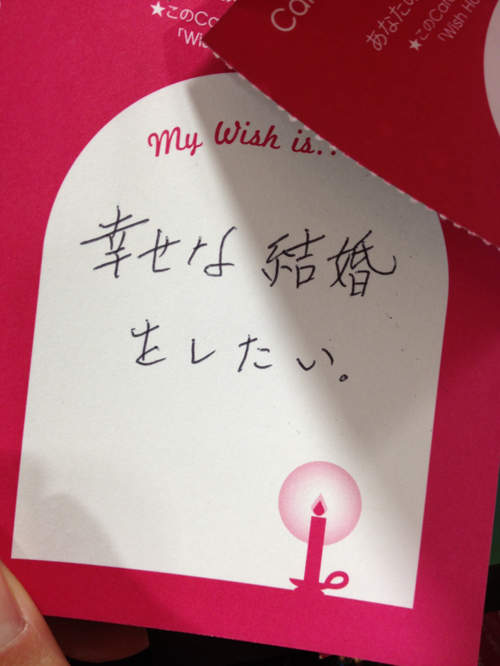 ★このCa
「Wis
Ca
あなたの
★このCard
「Wish H
My Wish is..
幸せな結婚
をしたい。